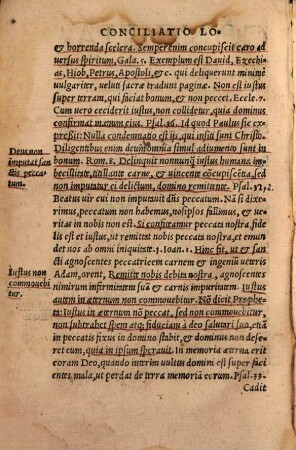 CONCILIATIO LO-
& horrenda scelera. Semper enim concupiscit caro ad
versus spiritum, Gala. 5. Exemplum est Dauid, Ezechi-
as, Hiob, Petrus, Apostoli, &c. qui deliquerunt minimè
uulgariter, ueluti sacræ tradunt paginæ. Non est iustus
super terram, qui faciat bonum, & non peccet. Eccle. 7.
Cum uero ceciderit iustus, non collidetur, quia dominus
confirmat manum eius. Psal. 36. Id quod Paulus sic ex-
pressit: Nulla condemnatio est ijs, qui insiti sunt Christo.
Diligentibus enim deum omnia simul adiumento sunt in
bonum. Rom. 8. Delinquit nonnunquã iustus humana im-
becillitate, titillante carne, & uincente cõcupiscẽtia, sed
non imputatur ei delictum, domino remittente. Psal. 32,2.
Beatus uir cui non imputauit dñs peccatum. Nã si dixe-
rimus, peccatum non habemus, nosipsos fallimus, & ue-
ritas in nobis non est. Si confiteamur peccata nostra, fide
lis est & iustus, ut remittat nobis peccata nostra, et emun
det nos ab omni iniquitate. 1. Ioan. 1. Hinc fit, ut & san-
cti agnoscentes peccatricem carnem & ingeniũ ueteris
Adam, orent, Remitte nobis debita nostra, agnoscentes
nimirum infirmitatem suã & carnis impuritatem. Iustus
autem in æternum non commouebitur. Nõ dicit Prophe-
ta: Iustus in æternum nõ peccat, sed non commouebitur,
non subtrahet spem atq; fiduciam à deo salutari suo, etiã
in peccatis fixus in domino stabit, & dominus non dese-
ret eum, quia in ipsum sperauit. In memoria æterna erit
coram Deo, quando interim uultus domini est super faci
entes mala, ut perdat de terra memoriã eorum. Psal. 33.
Cadit
Deus non
imputat san
ctis pecca-
tum.
Iustus non
commouebi
tur.